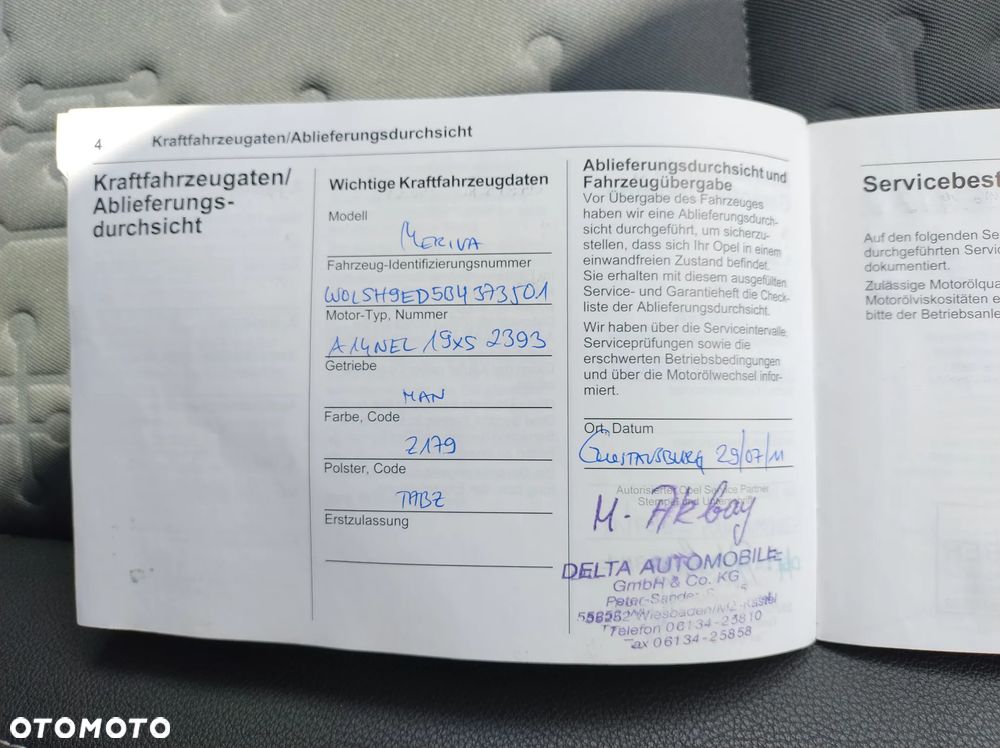 4
Kraftfahrzeugaten/Ablieferungsdurchsicht
Kraftfahrzeugaten/
Ablieferungs-
durchsicht
Wichtige Kraftfahrzeugdaten
Modell
MERIVA
Fahrzeug-Identifizierungsnummer
W0LSH9ED5B4373501
Motor-Typ, Nummer
A14NEL 19XS 2393
Getriebe
MAN
Farbe, Code
Z179
Polster, Code
TABZ
Erstzulassung
Ablieferungsdurchsicht und
Fahrzeugübergabe
Vor Übergabe des Fahrzeuges
haben wir eine Ablieferungsdurch-
sicht durchgeführt, um sicherzu-
stellen, dass sich Ihr Opel in einem
einwandfreien Zustand befindet.
Sie erhalten mit diesem ausgefüllten
Service- und Garantieheft die Check-
liste der Ablieferungsdurchsicht.
Wir haben über die Serviceintervalle,
Serviceprüfungen sowie die
erschwerten Betriebsbedingungen
und über die Motorölwechsel infor-
miert.
Ort, Datum
GUSTAVSBURG 29/07/11
Autorisierter Opel Service Partner
Stempel und Unterschrift
M. Akbay
DELTA AUTOMOBILE
GmbH & Co. KG
Peter-Sander-
Wiesbaden/Mz-Kastel
Telefon 06134-25810
ax 06134-25858
Servicebest
Auf den folgenden Se
durchgeführten Servic
dokumentiert.
Zulässige Motorölqua
Motorölviskositäten e
bitte der Betriebsanle
OTOMOTO